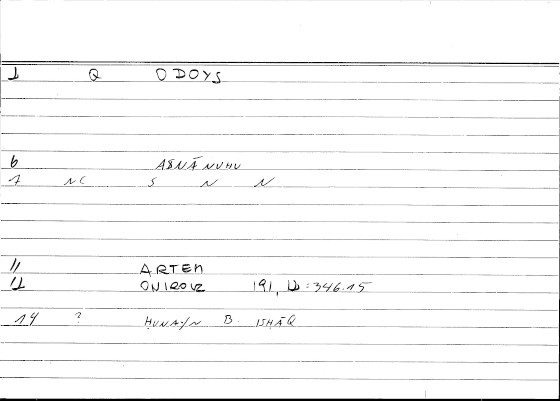 1 Q ODOYS
6 AṢNĀNUHU
7 NC S N N
11 ARTEM
12 ONIROKR 191, U = 346.15
14 ? ḤUNAYN B. ISḤĀQ